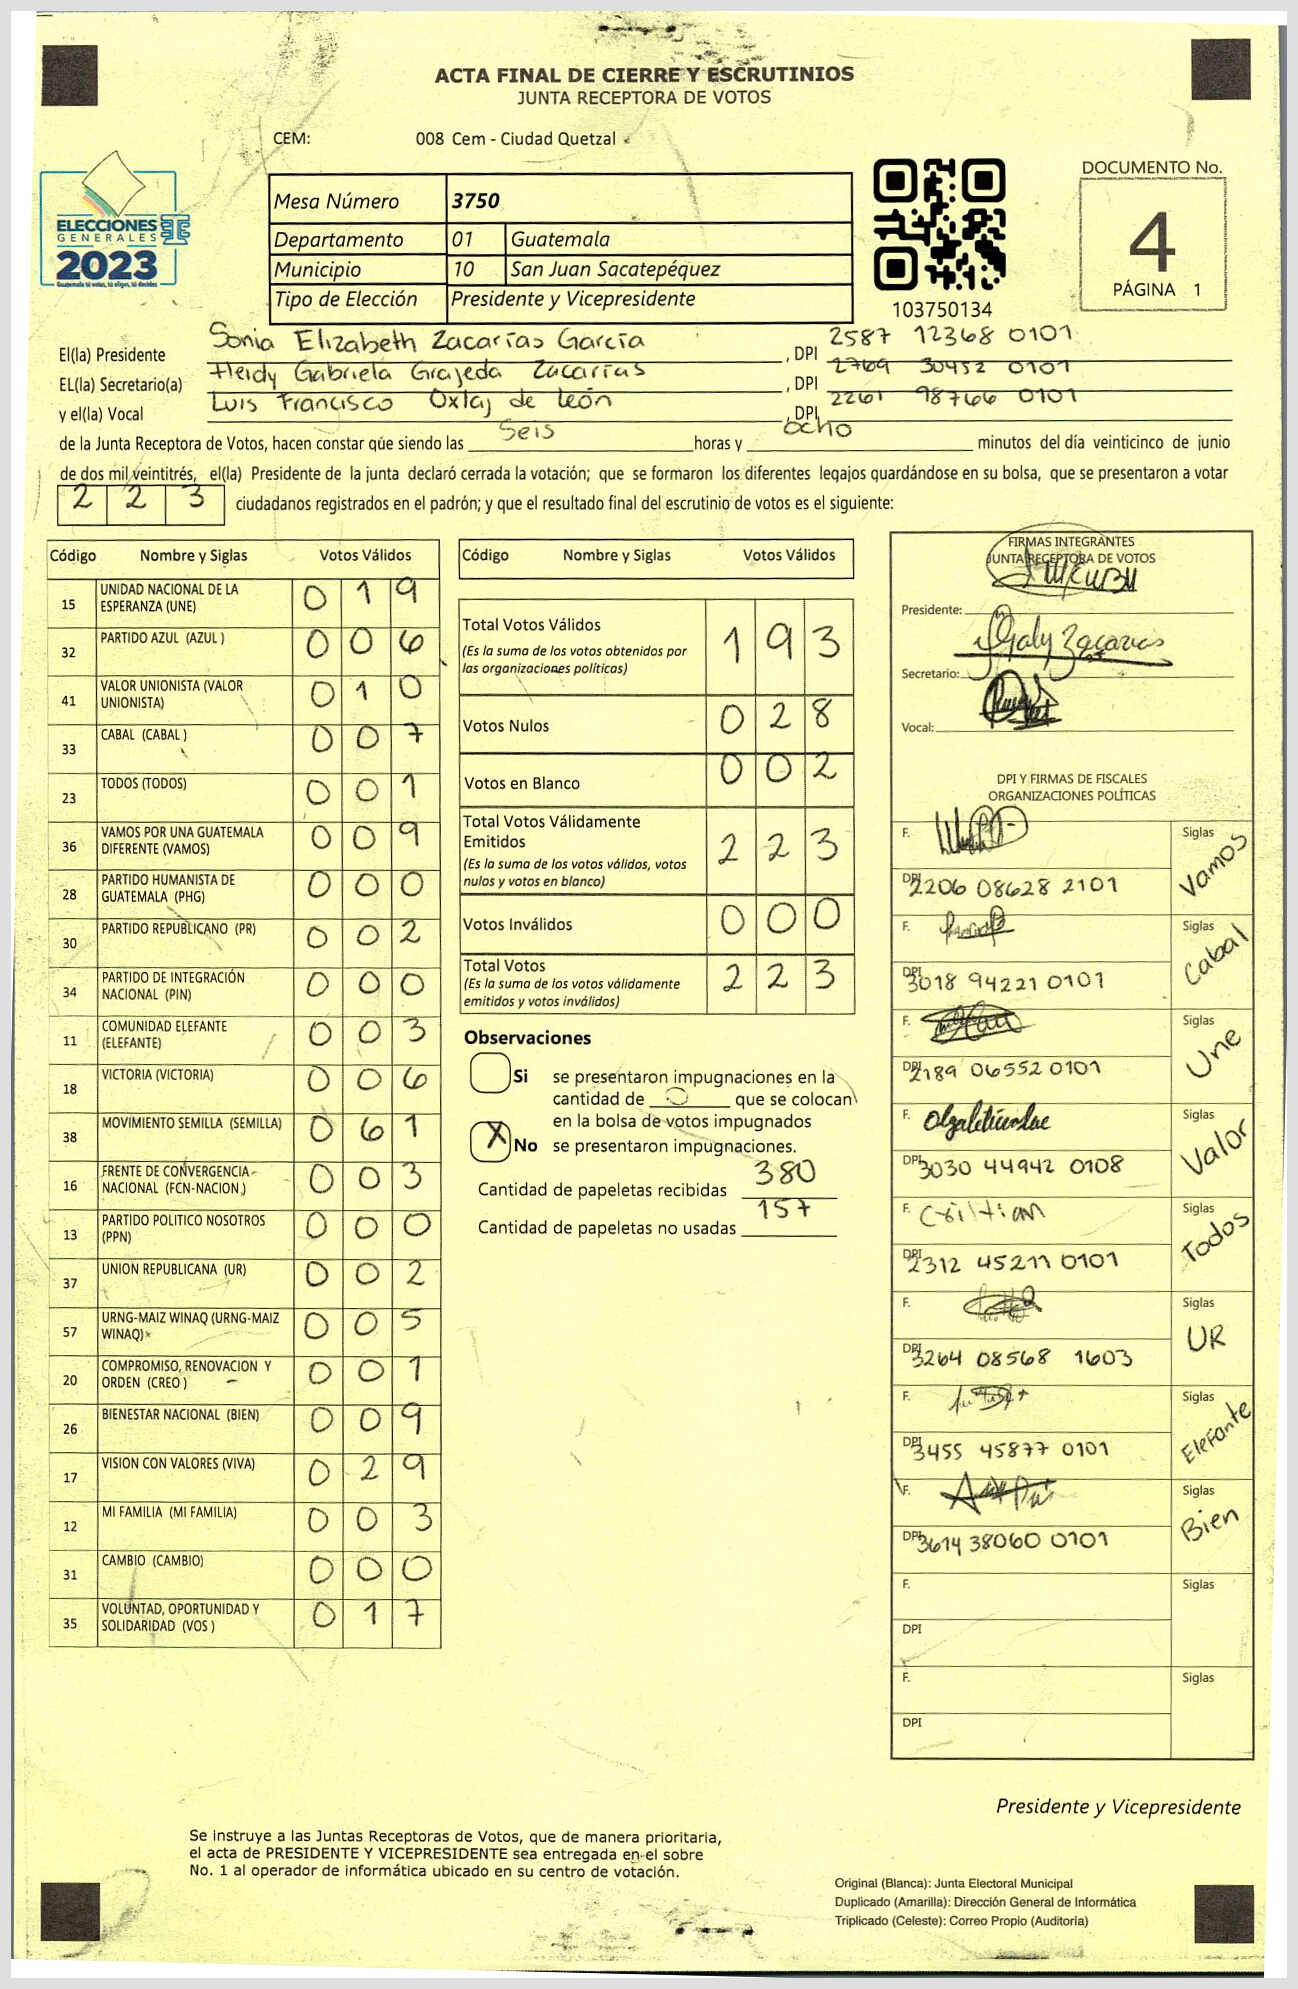 ACTA FINAL DE CIERRE Y ESCRUTINIOS
JUNTA RECEPTORA DE VOTOS
CEM: 008 Cem - Ciudad Quetzal
ELECCIONES
GENERALES
2023
Guatemala tú votas, tú eliges, tú decides
Mesa Número 3750
Departamento 01 Guatemala
Municipio 10 San Juan Sacatepéquez
Tipo de Elección Presidente y Vicepresidente
103750134
DOCUMENTO No.
4
PÁGINA 1
El(la) Presidente Sonia Elizabeth Zacarías García, DPI 2587 12368 0101
EL(la) Secretario(a) Heidy Gabriela Grajeda Zacarías, DPI 2769 30452 0101
y el(la) Vocal Luis Francisco Oxlaj de León, DPI 2261 98766 0101
de la Junta Receptora de Votos, hacen constar que siendo las Seis horas y ocho minutos del día veinticinco de junio
de dos mil veintitrés, el(la) Presidente de la junta declaró cerrada la votación; que se formaron los diferentes legajos guardándose en su bolsa, que se presentaron a votar
2 2 3 ciudadanos registrados en el padrón; y que el resultado final del escrutinio de votos es el siguiente:
Código Nombre y Siglas Votos Válidos
15 UNIDAD NACIONAL DE LA ESPERANZA (UNE) 0 1 9
32 PARTIDO AZUL (AZUL ) 0 0 6
41 VALOR UNIONISTA (VALOR UNIONISTA) 0 1 0
33 CABAL (CABAL ) 0 0 7
23 TODOS (TODOS) 0 0 1
36 VAMOS POR UNA GUATEMALA DIFERENTE (VAMOS) 0 0 9
28 PARTIDO HUMANISTA DE GUATEMALA (PHG) 0 0 0
30 PARTIDO REPUBLICANO (PR) 0 0 2
34 PARTIDO DE INTEGRACIÓN NACIONAL (PIN) 0 0 0
11 COMUNIDAD ELEFANTE (ELEFANTE) 0 0 3
18 VICTORIA (VICTORIA) 0 0 6
38 MOVIMIENTO SEMILLA (SEMILLA) 0 6 1
16 FRENTE DE CONVERGENCIA NACIONAL (FCN-NACION ) 0 0 3
13 PARTIDO POLITICO NOSOTROS (PPN) 0 0 0
37 UNION REPUBLICANA (UR) 0 0 2
57 URNG-MAIZ WINAQ (URNG-MAIZ WINAQ) 0 0 5
20 COMPROMISO, RENOVACION Y ORDEN (CREO ) 0 0 1
26 BIENESTAR NACIONAL (BIEN) 0 0 9
17 VISION CON VALORES (VIVA) 0 2 9
12 MI FAMILIA (MI FAMILIA) 0 0 3
31 CAMBIO (CAMBIO) 0 0 0
35 VOLUNTAD, OPORTUNIDAD Y SOLIDARIDAD (VOS ) 0 1 7
Código Nombre y Siglas Votos Válidos
Total Votos Válidos 1 9 3
(Es la suma de los votos obtenidos por
las organizaciones políticas)
Votos Nulos 0 2 8
Votos en Blanco 0 0 2
Total Votos Válidamente
Emitidos 2 2 3
(Es la suma de los votos válidos, votos
nulos y votos en blanco)
Votos Inválidos 0 0 0
Total Votos 2 2 3
(Es la suma de los votos válidamente
emitidos y votos inválidos)
Observaciones
Si se presentaron impugnaciones en la
cantidad de 0 que se colocan
en la bolsa de votos impugnados
X No se presentaron impugnaciones.
Cantidad de papeletas recibidas 380
Cantidad de papeletas no usadas 157
FIRMAS INTEGRANTES
JUNTA RECEPTORA DE VOTOS
Presidente:
Secretario:
Vocal:
DPI Y FIRMAS DE FISCALES
ORGANIZACIONES POLÍTICAS
F. Siglas Vamos
DPI 2206 08628 2101
F. Siglas Cabal
DPI 3018 94221 0101
F. Siglas Une
DPI 2189 06552 0101
F. Siglas Valor
DPI 3030 44942 0108
F. Cristian Siglas Todos
DPI 2312 45211 0101
F. Siglas UR
DPI 3264 08568 1603
F. Siglas Elefante
DPI 3455 45877 0101
F. Siglas Bien
DPI 3614 38060 0101
F. Siglas
DPI
F. Siglas
DPI
Presidente y Vicepresidente
Se instruye a las Juntas Receptoras de Votos, que de manera prioritaria,
el acta de PRESIDENTE Y VICEPRESIDENTE sea entregada en el sobre
No. 1 al operador de informática ubicado en su centro de votación.
Original (Blanca): Junta Electoral Municipal
Duplicado (Amarilla): Dirección General de Informática
Triplicado (Celeste): Correo Propio (Auditoría)